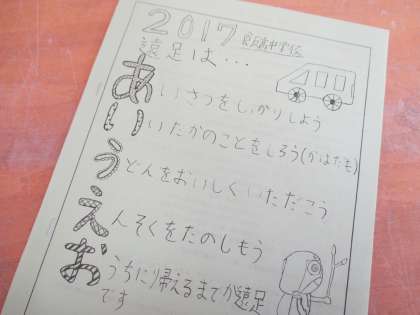 2017
遠足は...
あいさつをしっかりしよう
いいたかのことをしろう(かはだも)
うどんをおいしくいただこう
えんそくをたのしもう
おうちに帰えるまでが遠足
です